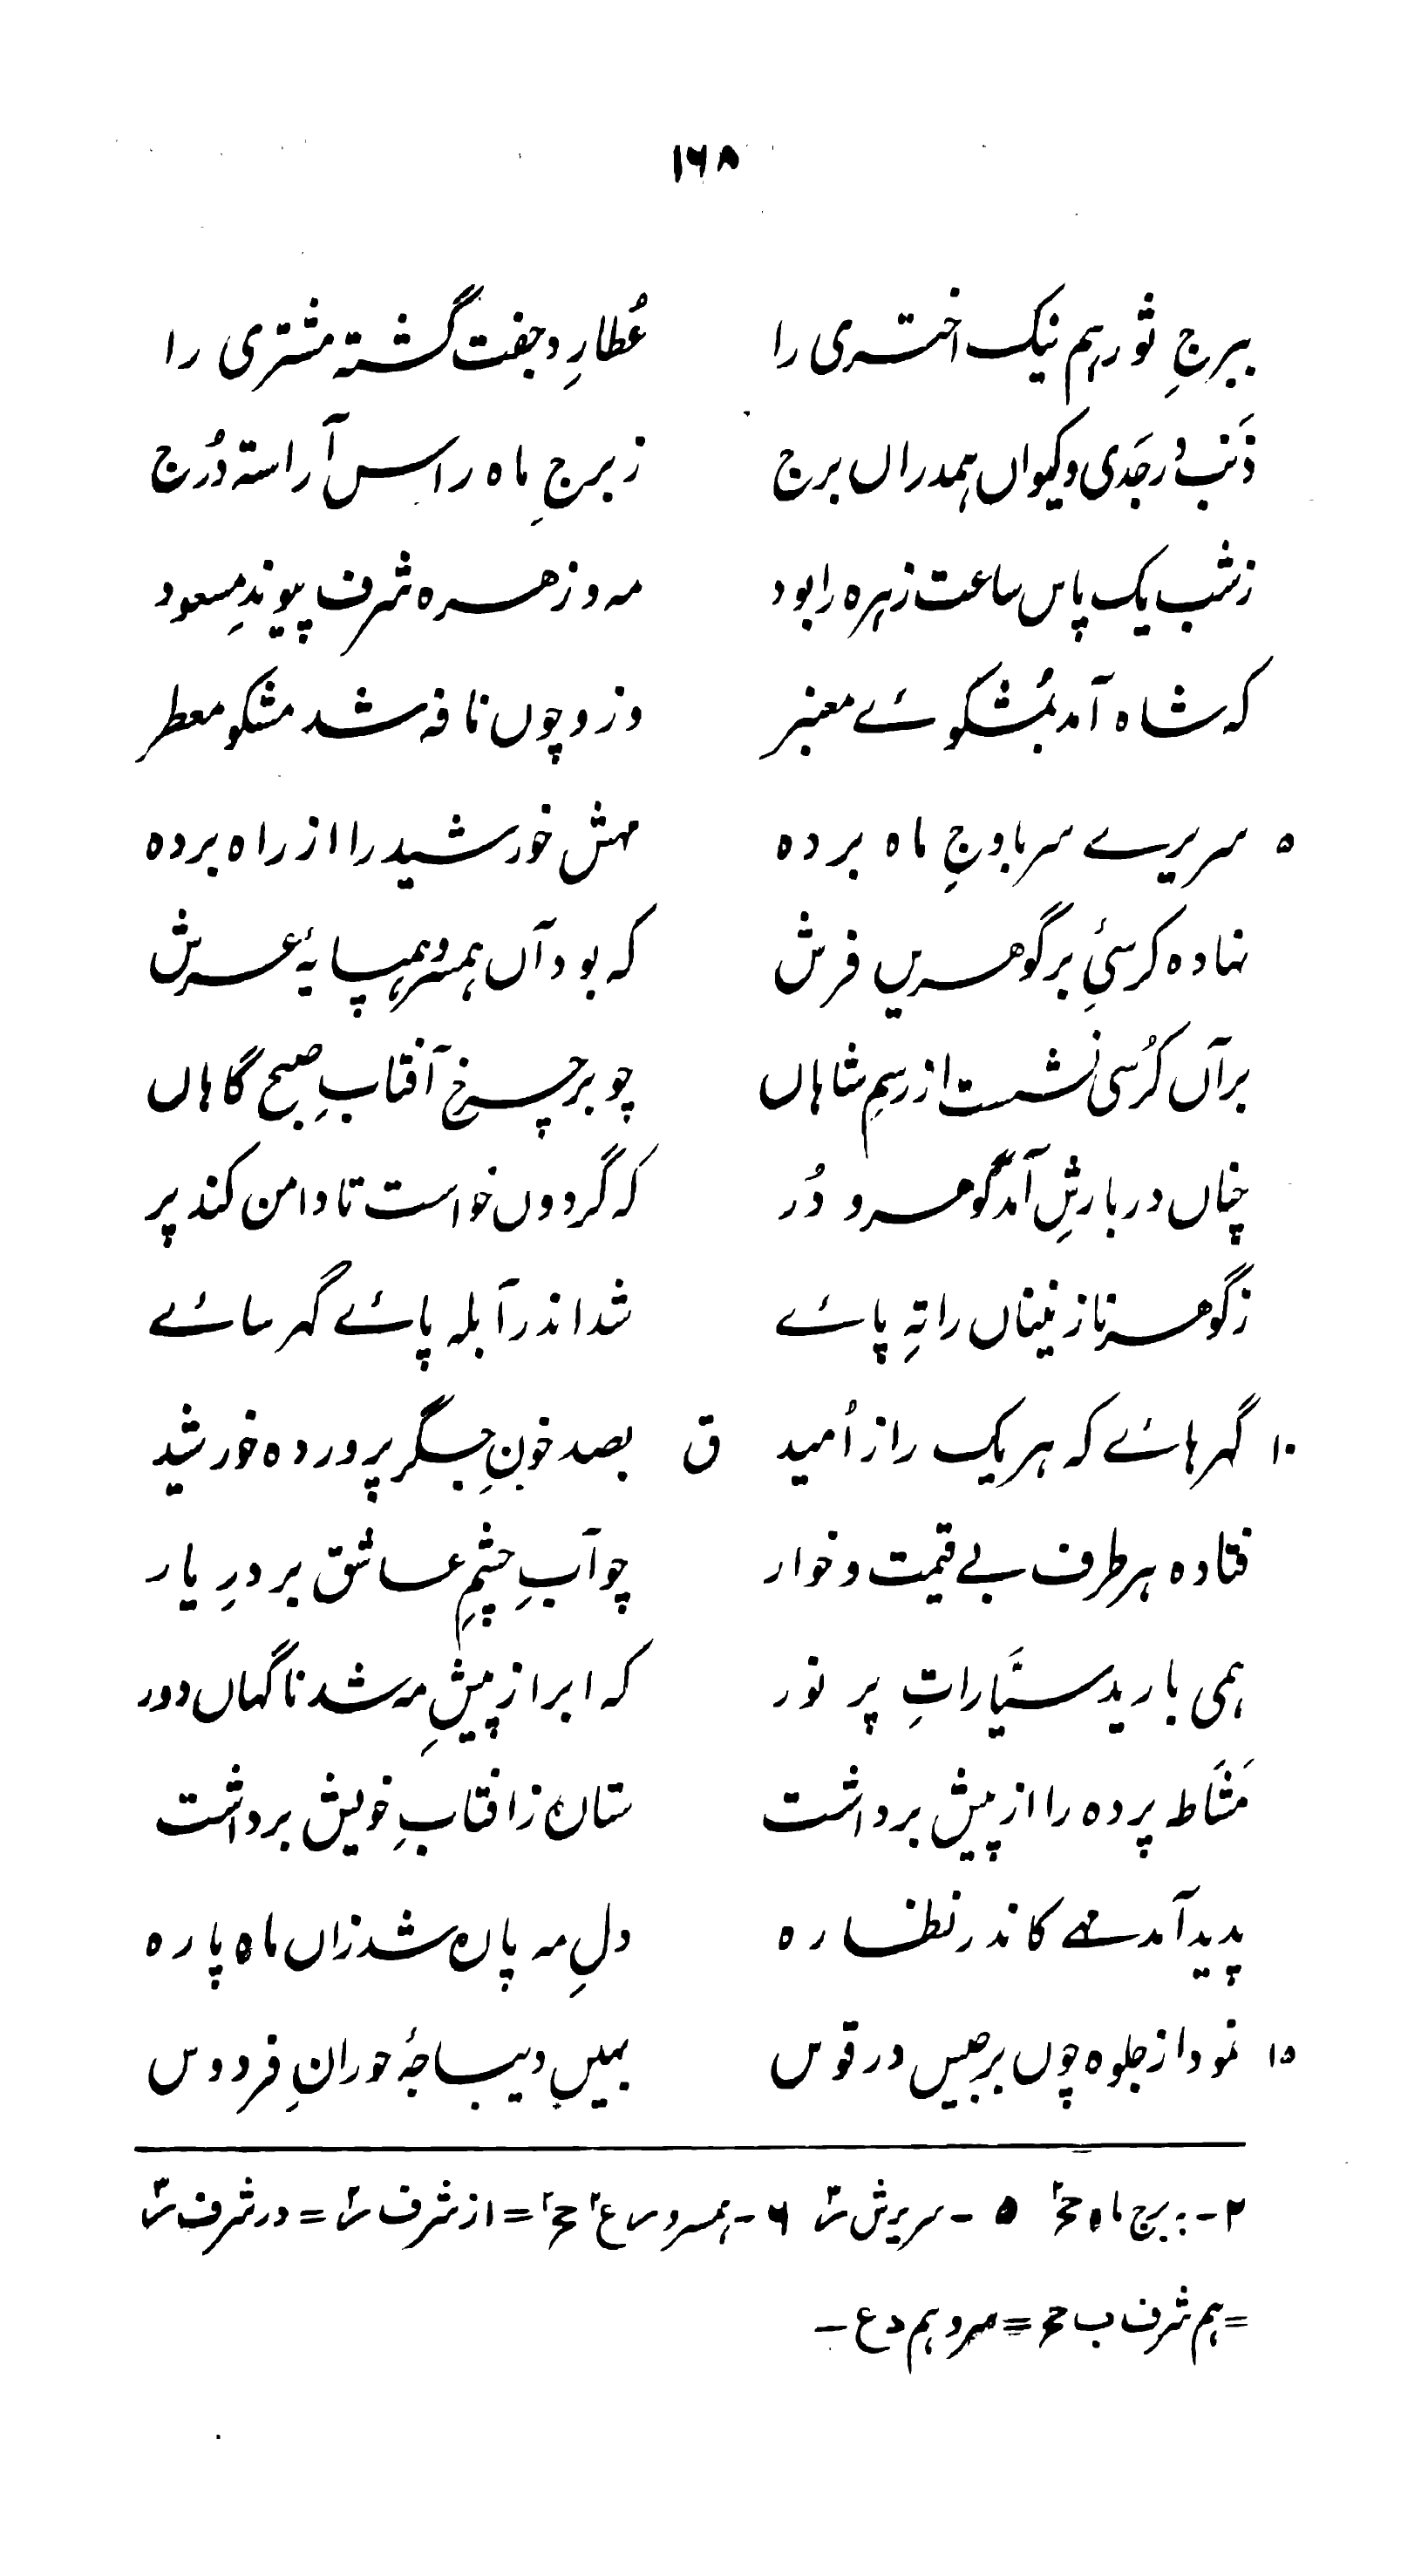 ۱۶۸
ببرجِ ثور ہم نیک اختری را عُطارِد جفت گشتہ مشتری را
ذَنَب در جَدی و کیواں ہمدراں برج ز برجِ ماہ راس آراستہ دُرج
ز شب یک پاس ساعت زہرہ را بود مہ و زہرہ شرف پیوندِ مسعود
کہ شاہ آمد بمُشکوئے معنبر وز و چوں نافہ شد مشکو معطر
۵ سریرے سر باوجِ ماہ بردہ مہش خورشید را از راہ بردہ
نہادہ کرسئِ بر گوہریں فرش کہ بود آں ہمسر و ہمپایۂ عرش
بر آں کُرسی نشست از رسمِ شاہاں چو بر چرخ آفتابِ صبح گاہاں
چناں در بارشِ آمد گوہر و دُر کہ گردوں خواست تا دامن کند پر
ز گوہر نازنیناں را تہِ پائے شد اندر آبلہ پائے گہر سائے
۱۰ گہرہائے کہ ہر یک را ز اُمید ق بصد خونِ جگر پروردہ خورشید
فتادہ ہر طرف بے قیمت و خوار چو آبِ چشمِ عاشق بر درِ یار
ہمی بارید سیَّاراتِ پر نور کہ ابر از پیشِ مہ شد ناگہاں دور
مَشَاط پردہ را از پیش برداشت ستارہ ز آفتابِ خویش برداشت
پدید آمد مہے کاندر نظارہ دلِ مہ پارہ شد زاں ماہ پارہ
۱۵ نمود از جلوہ چوں برجیس در قوس بہیں دیباجۂ حورانِ فردوس
۲- : برج ماہ ح۲ ۵ - سریرش س۲ ۶ - ہمسر و س ع۲ ح۲ = از شرف س۲ = در شرف س۲
= ہم شرف ب ح = سر و ہم د ع -